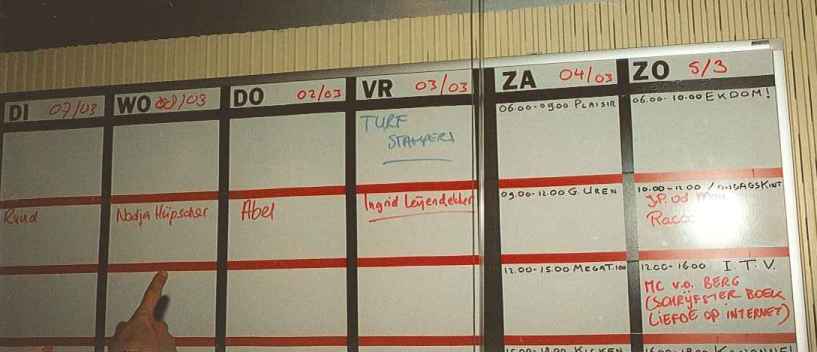 DI 07/03 WO 08/03 DO 02/03 VR 03/03 ZA 04/03 ZO 5/3
TURF
STAMPERS
06.00-09.00 PLAISIR
06.00-10.00 EKDOM!
Ruud
Nadja Hüpscher
Abel
Ingrid Leijendekker
09.00-12.00 G. UREN
10.00-12.00
J.P. vd
12.00-15.00 MEGAT.100
12.00-16.00 I.T.V.
MC v.d. BERG
(SCHRIJFSTER BOEK
LIEFDE OP INTERNET)